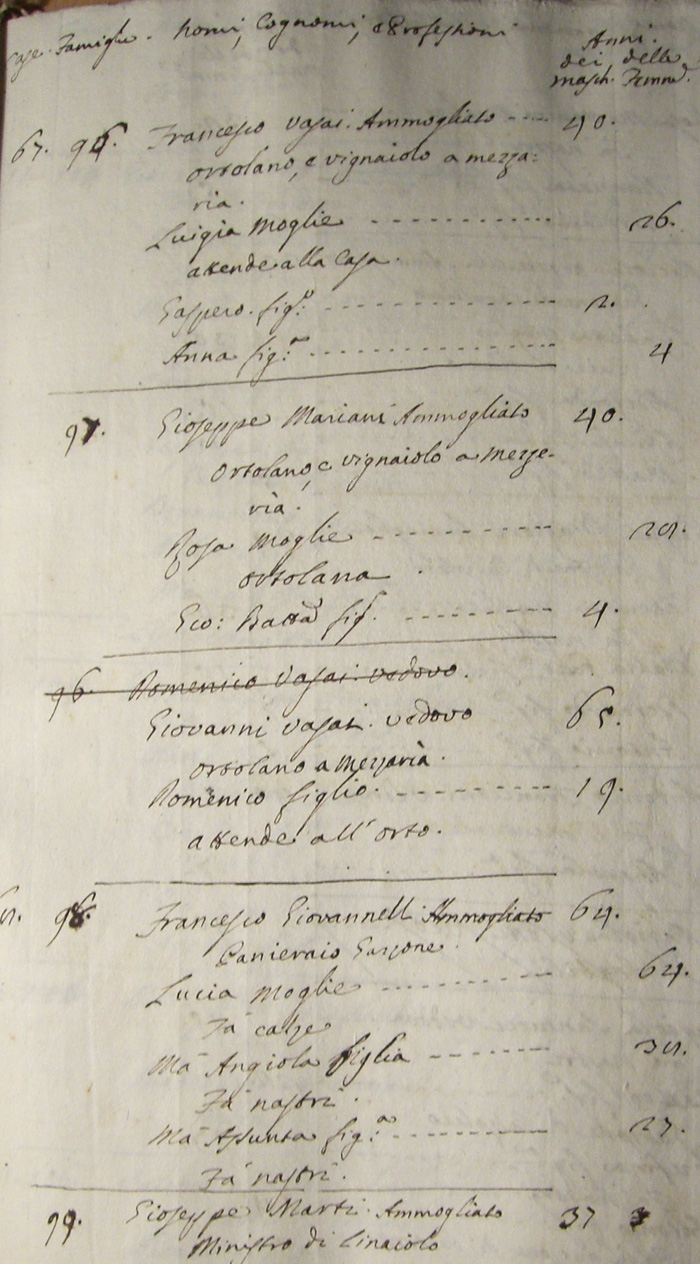 Case. Famiglie. Nomi, Cognomi, e Professioni Anni.
dei della
masch. Femm.
67. 96. Francesco Vasai. Ammogliato ---- 40.
ortolano, e vignaiolo a mezza=
ria.
Luigia Moglie ------------ 26.
attende alla Casa.
Gaspero. fig:o ------------ 2.
Anna fig:a ------------ 4
97. Gioseppe Mariani Ammogliato 40.
Ortolano, e vignaiolo a mezze-
rìa.
Rosa Moglie ------------
ortolana
Gio: Batta fig. ---------- 4.
96. Domenico Vasai. vedovo.
Giovanni Vasai. vedovo
ortolano a Mezzarìa.
Domenico figlio. ---------- 19.
attende all' orto.
98. Francesco Giovannelli Ammogliato 64.
Panieraio Garzone.
Lucia Moglie ------------ 64.
Fa calze
Ma Angiola figlia --------
Fa nastri.
Ma Assunta fig:a ----------- 27.
Fa nastri.
99. Gioseppe Marti. Ammogliato 37
Ministro di Linaiolo